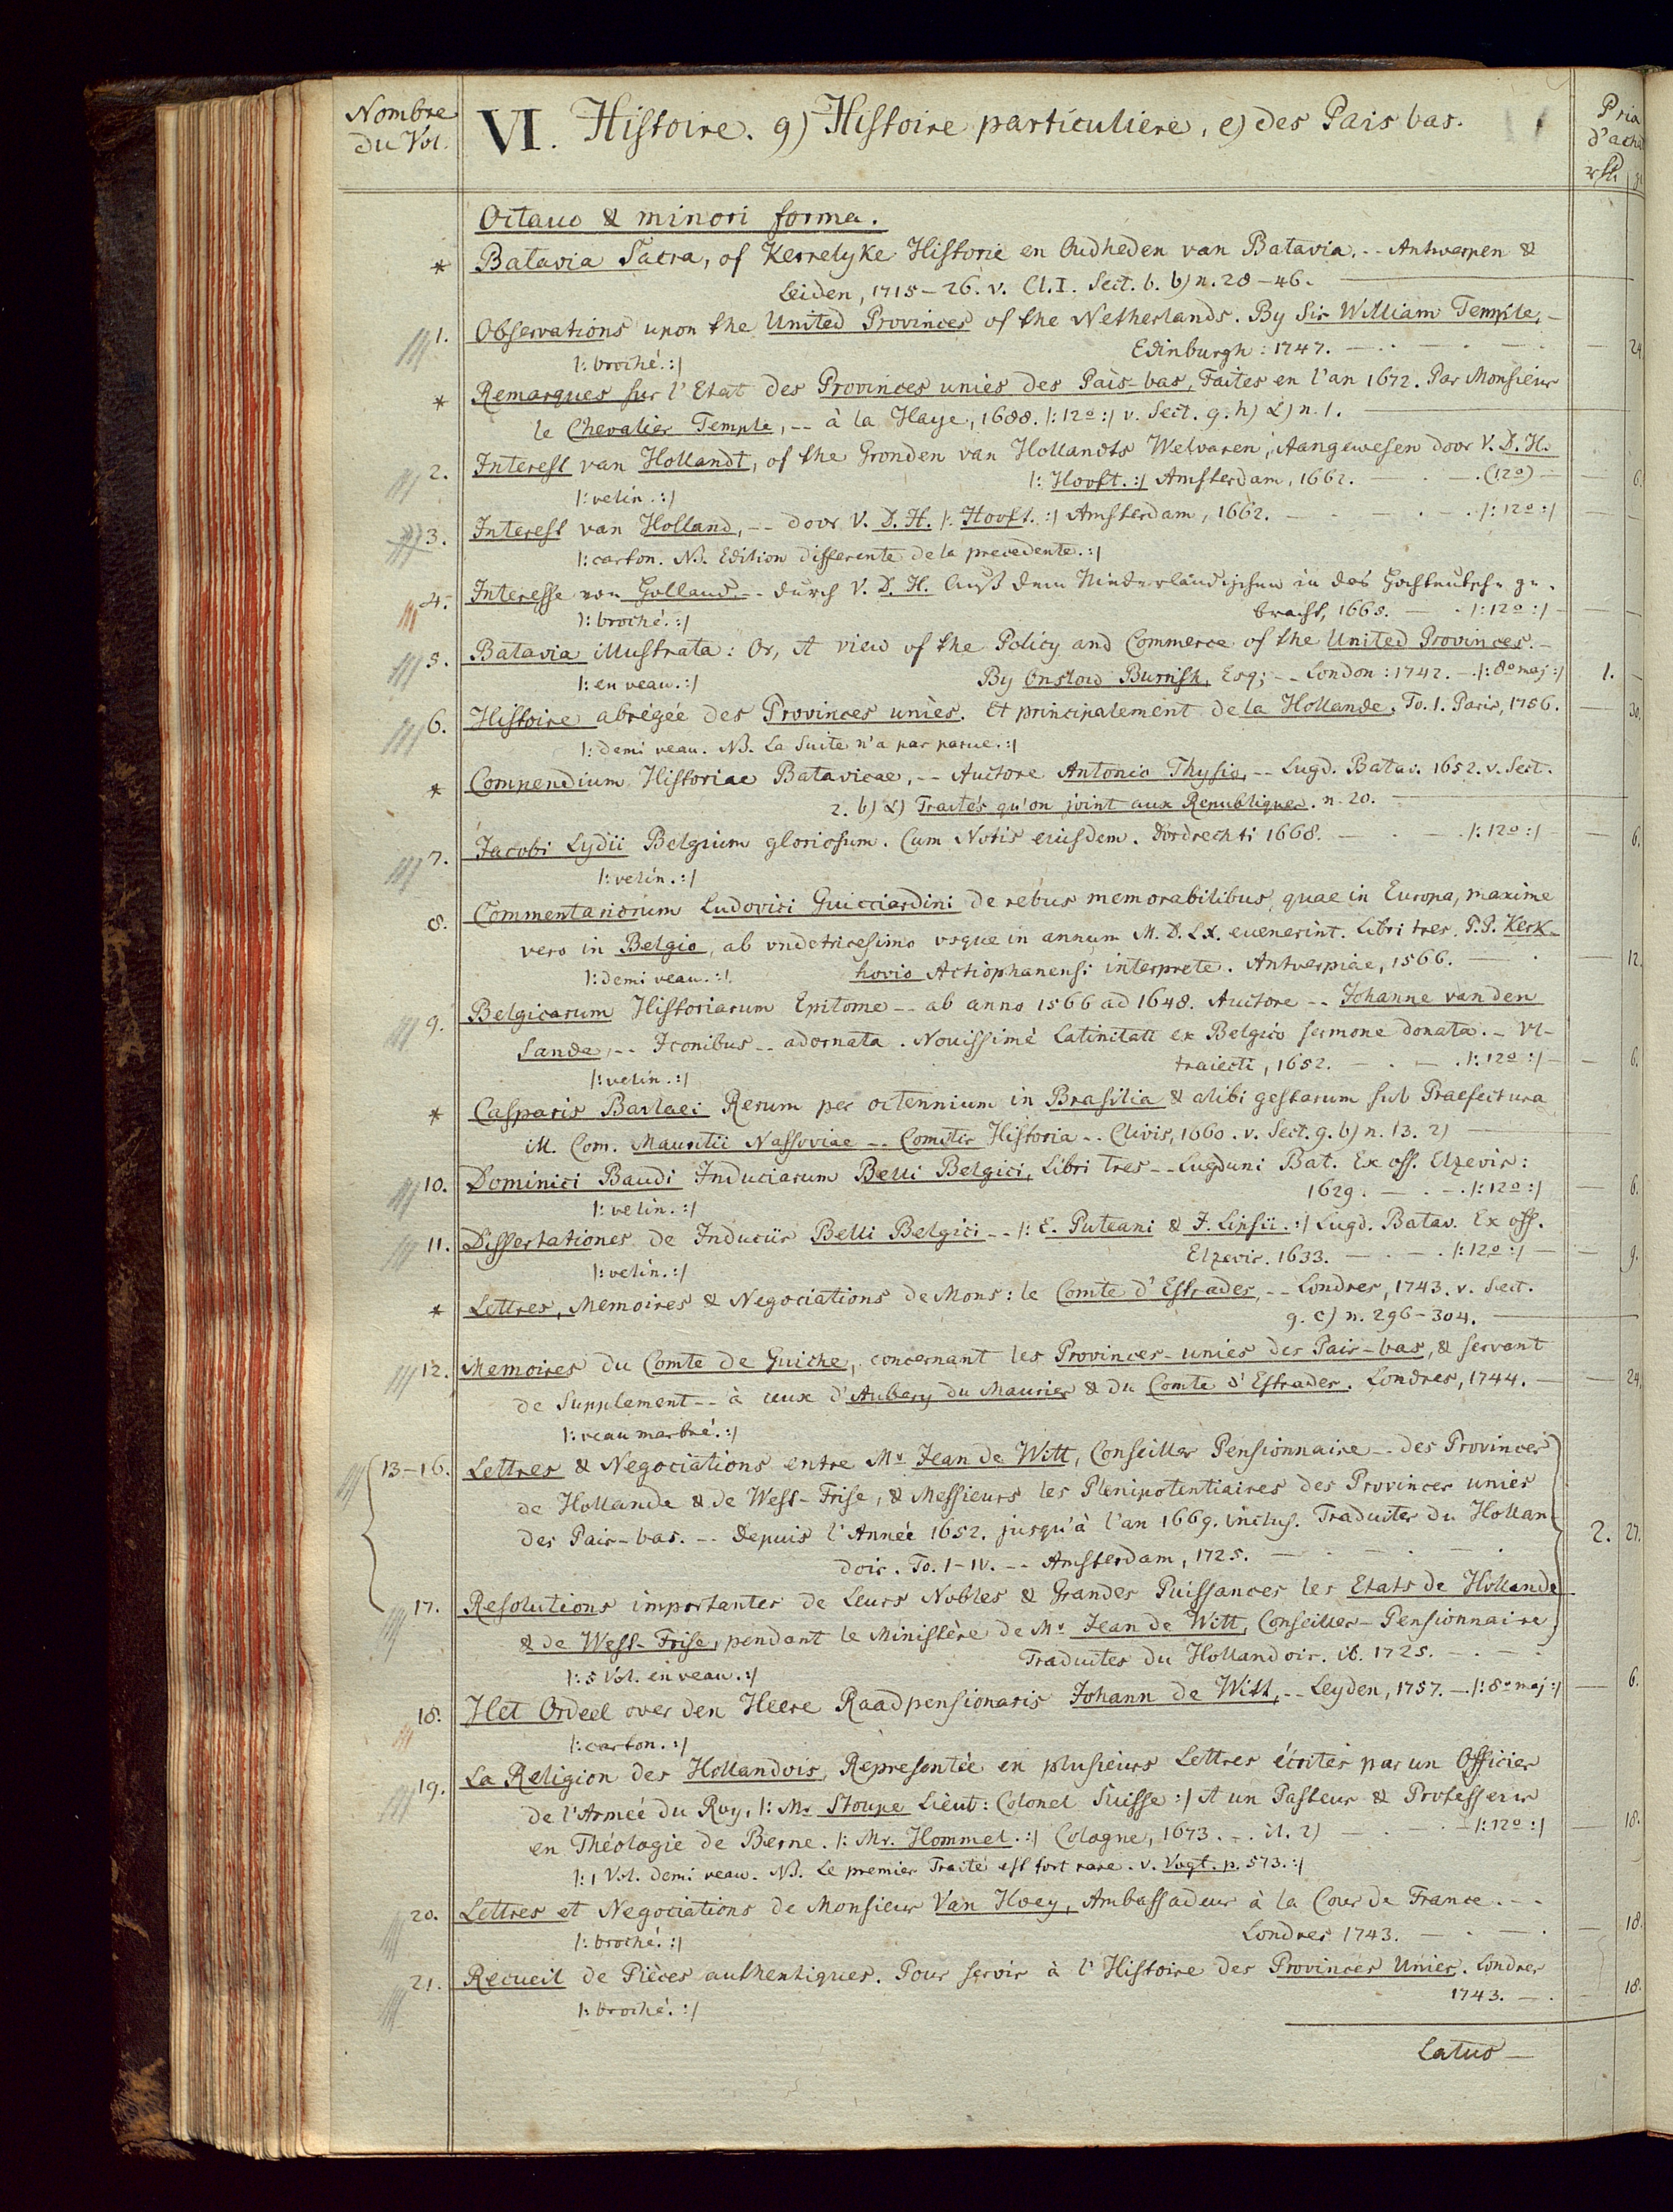 Nombre
du Vol.
VI. Histoire. g) Histoire particuliere, e) des Pais bas.
Prix
d'achat
Octauo & minori forma.
* Batavia Sacra, of Kerkelyke Historie en Oudheden van Batavia. -- Antwerpen &
Leiden, 1715-26. v. Cl. I. Sect. b. b) n. 28-46.
1. Observations upon the United Provinces of the Netherlands. By Sir William Temple, -
|: broché. :| Edinburgh: 1747. — 24.
* Remarques sur l'Etat des Provinces uniés des Païs-bas, Faites en l'an 1672. Par Monsieur
le Chevalier Temple, -- à la Haye, 1688. |: 12º :| v. Sect. g. h) n. 1.
2. Interest van Hollandt, of the Gronden van Hollandts Welvaren, Aangewesen door V. D. H.
|: velin. :| |: Hooft. :| Amsterdam, 1662. (12º) — 6.
3. Interest van Holland, -- door V. D. H. |: Hooft. :| Amsterdam, 1662. |: 12º :|
|: carton. NB. Edition differente de la precedente. :|
4. Interesse von Holland. -- durch V. D. H. Auß dem Niederländischen in das Hochteutsche ge-
|: broché. :| bracht, 1665. |: 12º :|
5. Batavia illustrata: Or, A view of the Policy and Commerce of the United Provinces. -
|: en veau. :| By Onslow Burrish, Esq; -- London: 1742. |: 8º maj :| 1. —
6. Histoire abrégée des Provinces uniés. Et principalement de la Hollande. To. 1. Paris, 1756. — 30.
|: demi veau. NB. La Suite n'a pas parue. :|
* Compendium Historiae Batavicae, -- Auctore Antonio Thysio, -- Lugd. Batav. 1652. v. Sect.
2. b) Traités qu'on joint aux Republiques. n. 20.
7. Jacobi Lydii Belgium gloriosum. Cum Notis eiusdem. Dordrechti 1668. |: 12º :| — 6.
|: velin. :|
8. Commentariorum Ludovici Guicciardini de rebus memorabilibus, quae in Europa, maxime
vero in Belgio, ab vndetricesimo vsque in annum M. D. LX. euenerint. Libri tres. P. P. Kerk-
|: demi veau. :| hovio Actiophanensi interprete. Antverpiae, 1566. — 12.
9. Belgicarum Historiarum Epitome -- ab anno 1566 ad 1648. Auctore -- Johanne van den
Sande, -- Iconibus -- adornata. Nouissimè Latinitati ex Belgico sermone donata. - Vl-
|: velin. :| traiecti, 1652. |: 12º :| — 6.
* Casparis Barlaei Rerum per octennium in Brasilia & alibi gestarum sub Praefectura
Ill. Com. Mauritii Nassoviae -- Comitis Historia -- Clivis, 1660. v. Sect. g. b) n. 13. 2)
10. Dominici Baudi Induciarum Belli Belgici, Libri Tres -- Lugduni Bat. Ex off. Elzevir:
|: velin. :| 1629. |: 12º :| — 6.
11. Dissertationes de Induciis Belli Belgici -- |: E. Puteani & J. Lipsii. :| Lugd. Batav. Ex off.
|: velin. :| Elzevir. 1633. |: 12º :| — 9.
* Lettres, Memoires & Negociations de Mons: le Comte d'Estrades, -- Londres, 1743. v. Sect.
g. c) n. 296-304.
12. Memoires du Comte de Guiche, concernant les Provinces-unies des Pais-bas, & servant
de Supplement -- à ceux d'Aubery du Maurier & du Comte d'Estrades. Londres, 1744. — 24.
|: veau marbré. :|
13-16. Lettres & Negociations entre Mr Jean de Witt, Conseiller Pensionnaire -- des Provinces
de Hollande & de West-Frise, & Messieurs les Plenipotentiaires des Provinces unies
des Pais-bas. -- Depuis l'Année 1652. jusqu'à l'an 1669. inclus. Traduites du Hollan-
dois. To. I-IV. -- Amsterdam, 1725. 2. 27.
17. Resolutions importantes de Leurs Nobles & Grandes Puissances les Etats de Hollande
& de West-Frise, pendant le Ministère de Mr Jean de Witt, Conseiller-Pensionnaire
|: 5 Vol. en veau. :| Traduites du Hollandois. ib. 1725.
18. Het Ordeel over den Heere Raadpensionaris Johann de Witt, -- Leyden, 1757. |: 8º maj :| — 6.
|: carton. :|
19. La Religion des Hollandois, Representée en plusieurs Lettres écrites par un Officier
de l'Armeé du Roy, |: Mr Stoupe Lieut: Colonel Suisse :| A un Pasteur & Professeur
en Théologie de Berne. |: Mr. Hommel. :| Cologne, 1673. -. it. 2) |: 12º :| — 18.
|: 1 Vol. demi veau. NB. Le premier Traité est fort rare. v. Vogt. p. 573. :|
20. Lettres et Negociations de Monsieur Van Hoey, Ambassadeur à la Cour de France. --
|: broché. :| Londres 1743. — 18.
21. Recueil de Pièces authentiques. Pour servir à l'Histoire des Provinces Unies. Londres
|: broché. :| 1743. — 18.
Latus —